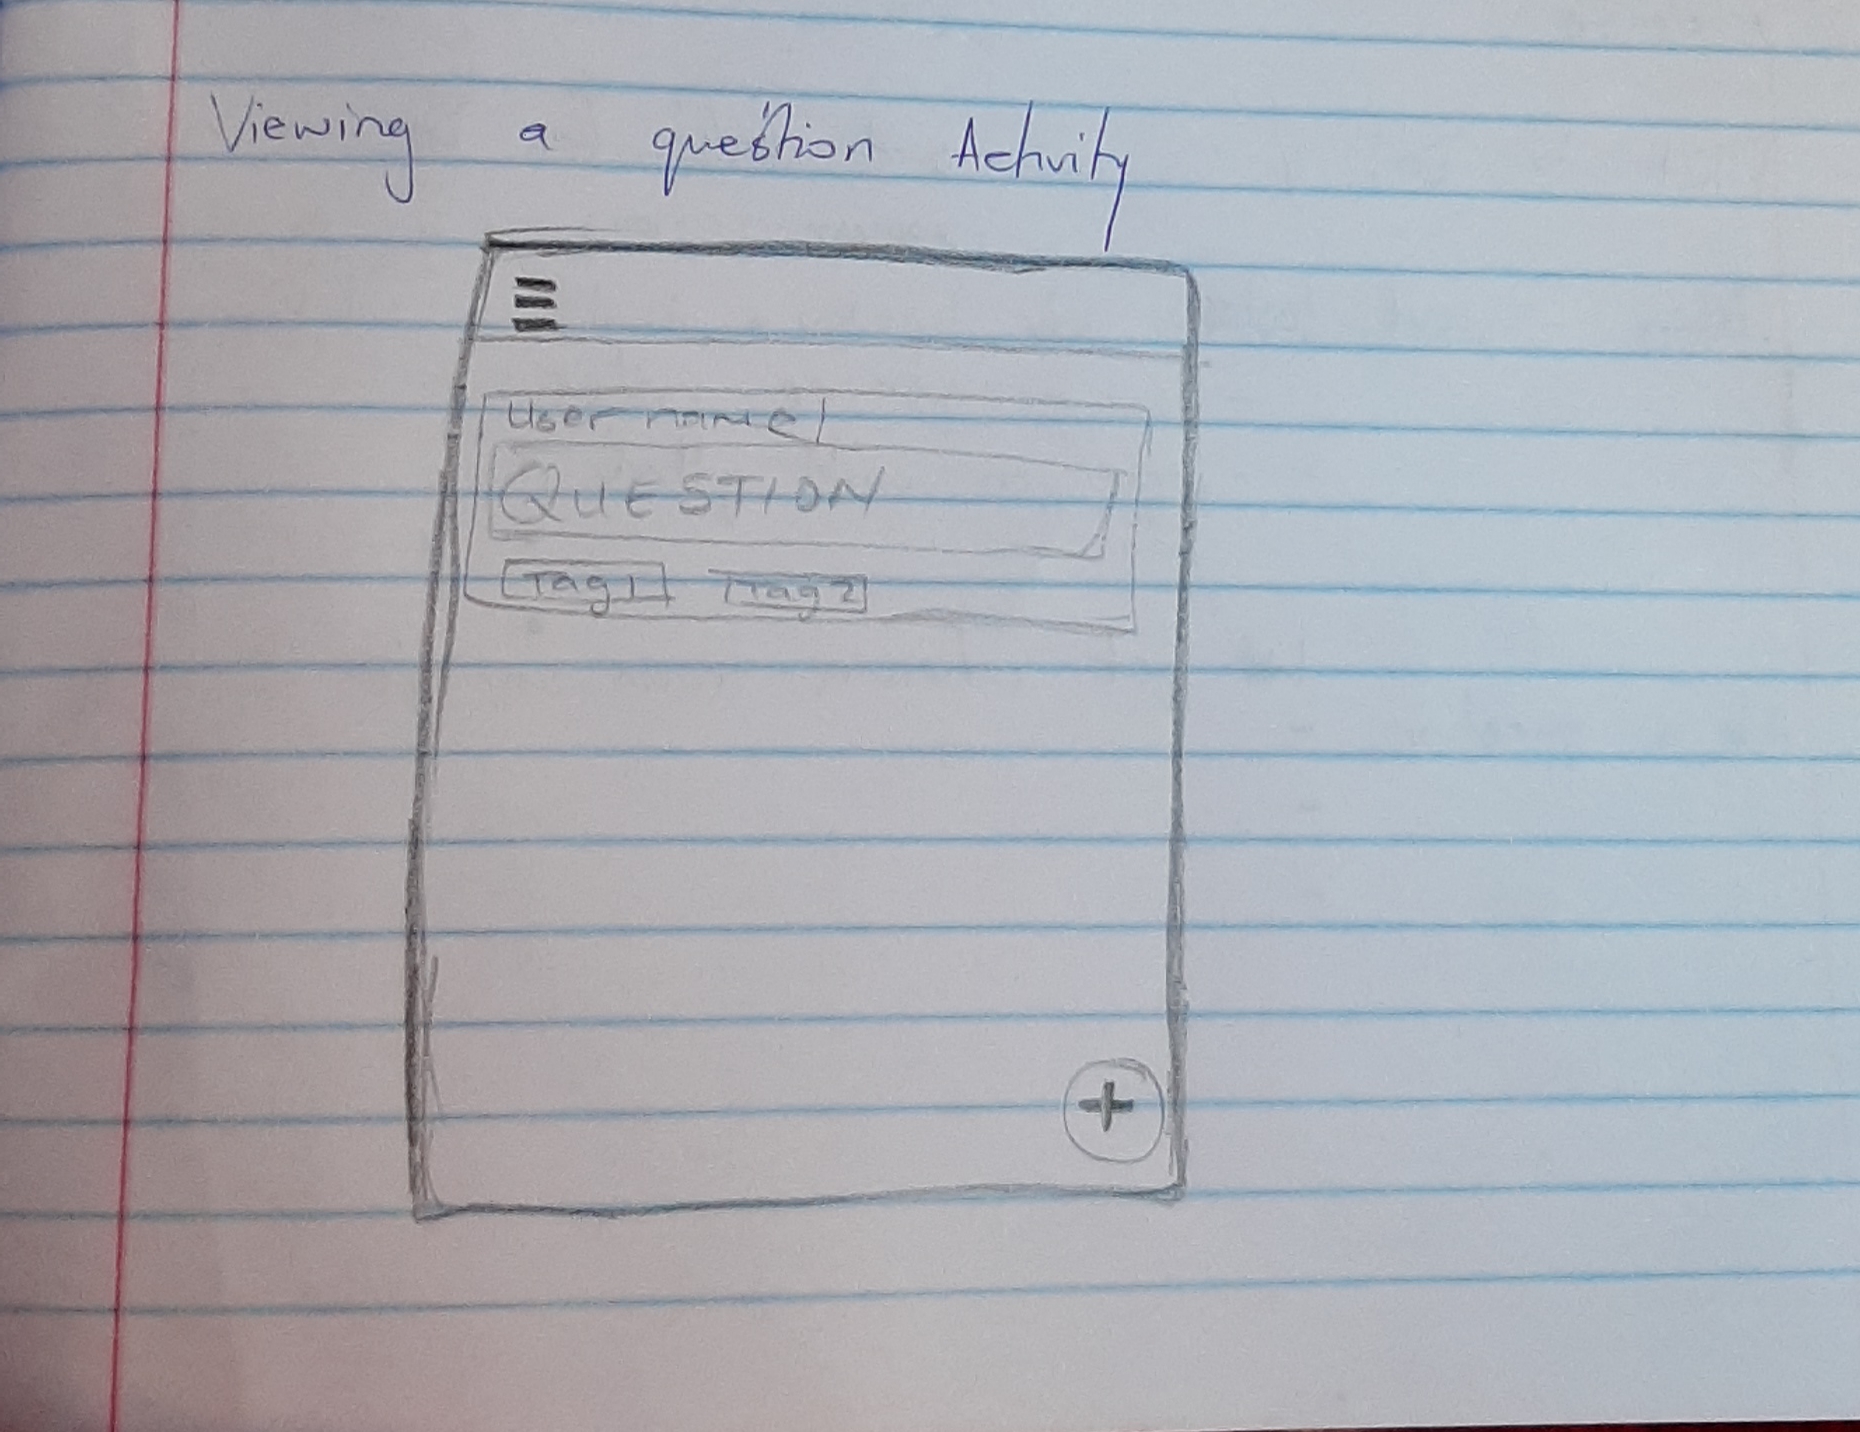 Viewing a question Activity
User name
QUESTION
Tag1 Tag2
+